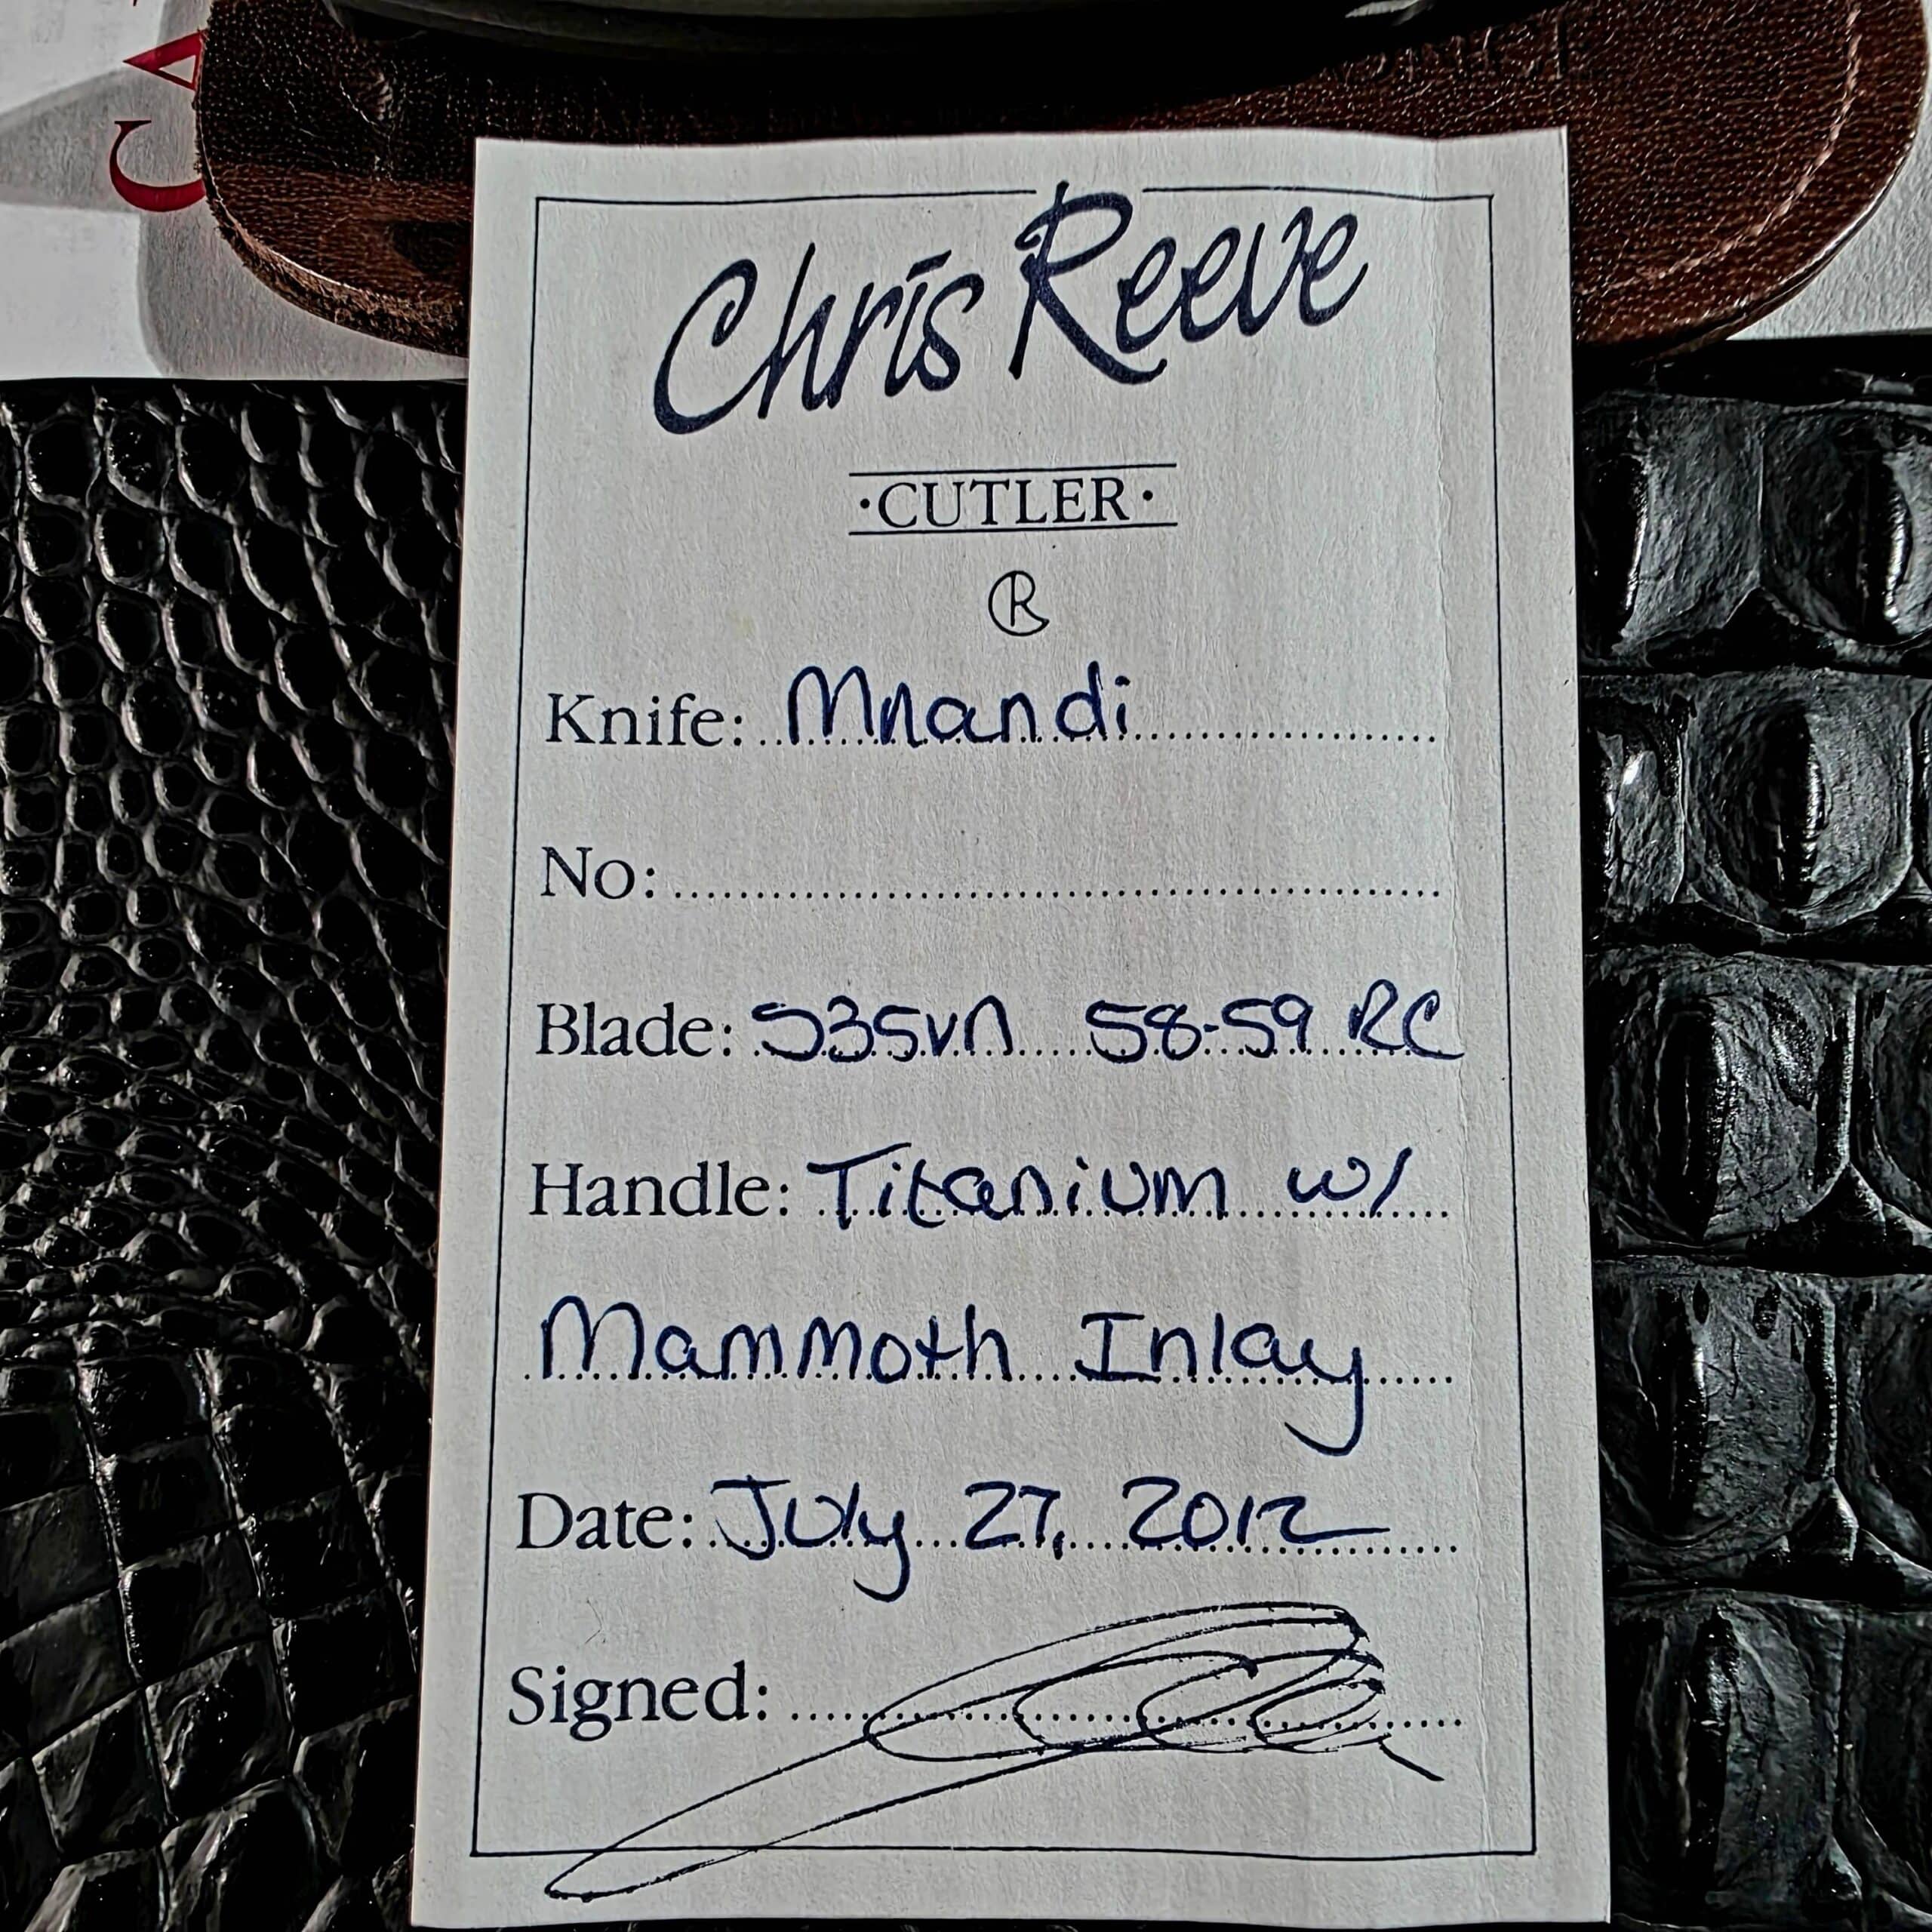 CA
Chris Reeve
·CUTLER·
CR
Knife: Mnandi
No:
Blade: S35vn 58-59 RC
Handle: Titanium w/
Mammoth Inlay
Date: July 27, 2012
Signed: